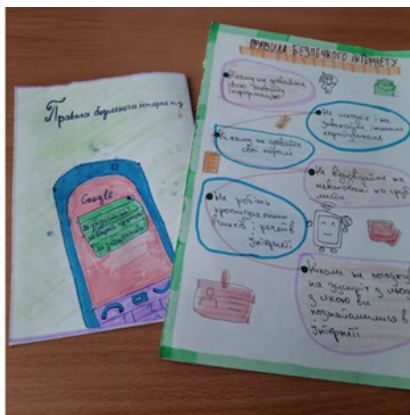 Правила безпечного інтернету
Google
ПРАВИЛА БЕЗПЕЧНОГО ІНТЕРНЕТУ
Нікому не давайте
свою
інформацію
Не шкодьте і не
заважайте іншим
користувачам
Нікому не давайте
свої паролі
Не відповідайте на
невиховані та грубі
листи
Не робіть
протизаконних
вчинків і речей в
Інтернеті
Ніколи не
на зустріч з
з якою ви
познайомилися в
Інтернеті